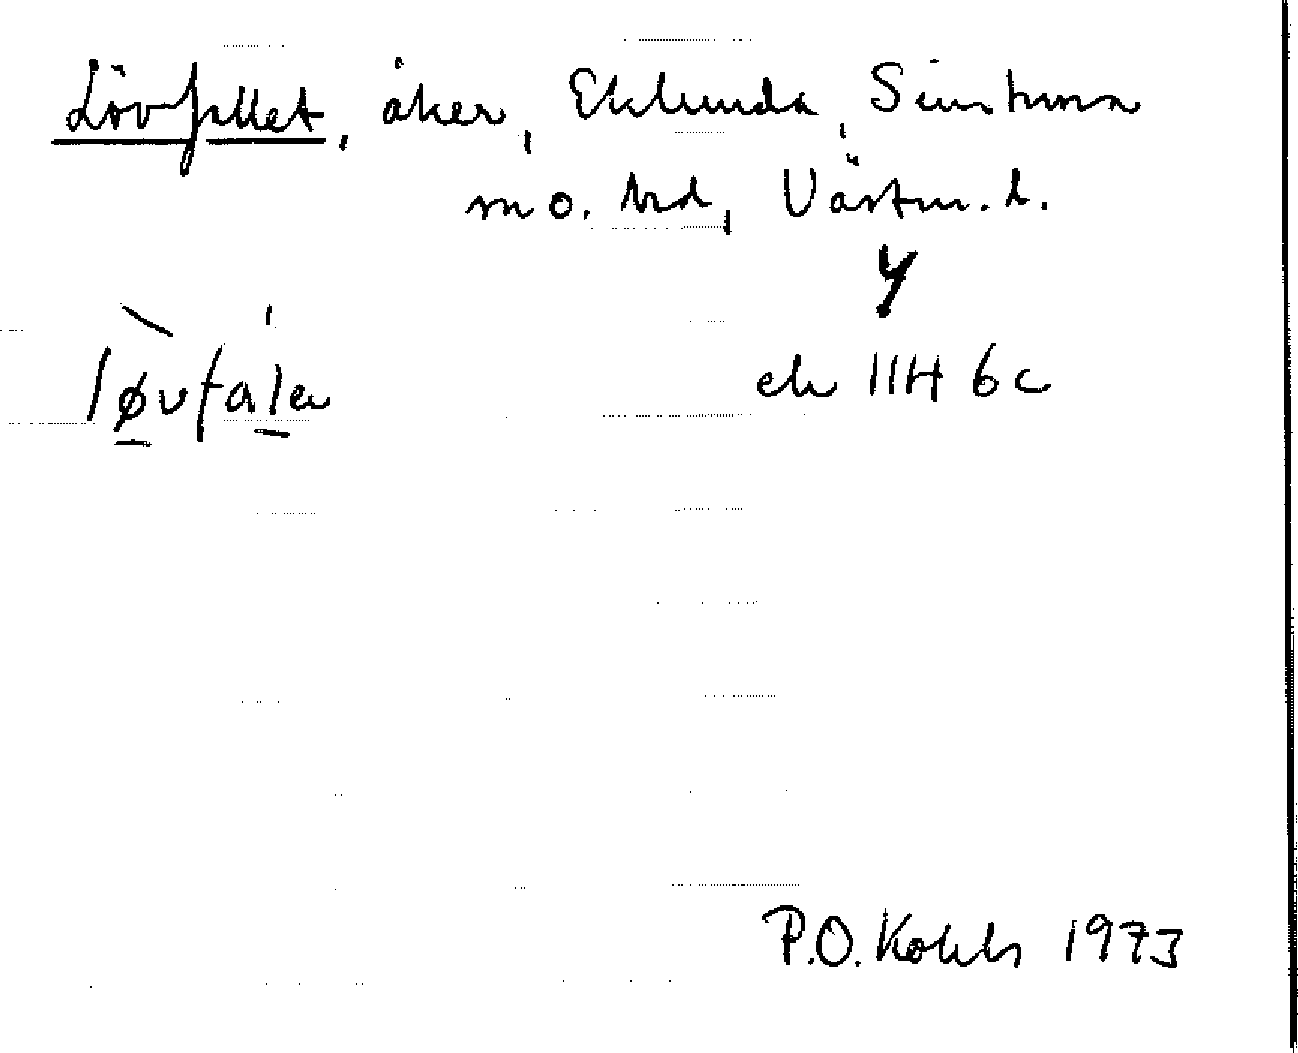 Lövfället, åker, Eklunda, Simtuna
sn o. hd, Västm. l.
løvfalə
ek 11H 6c
P.O. Kohls 1973